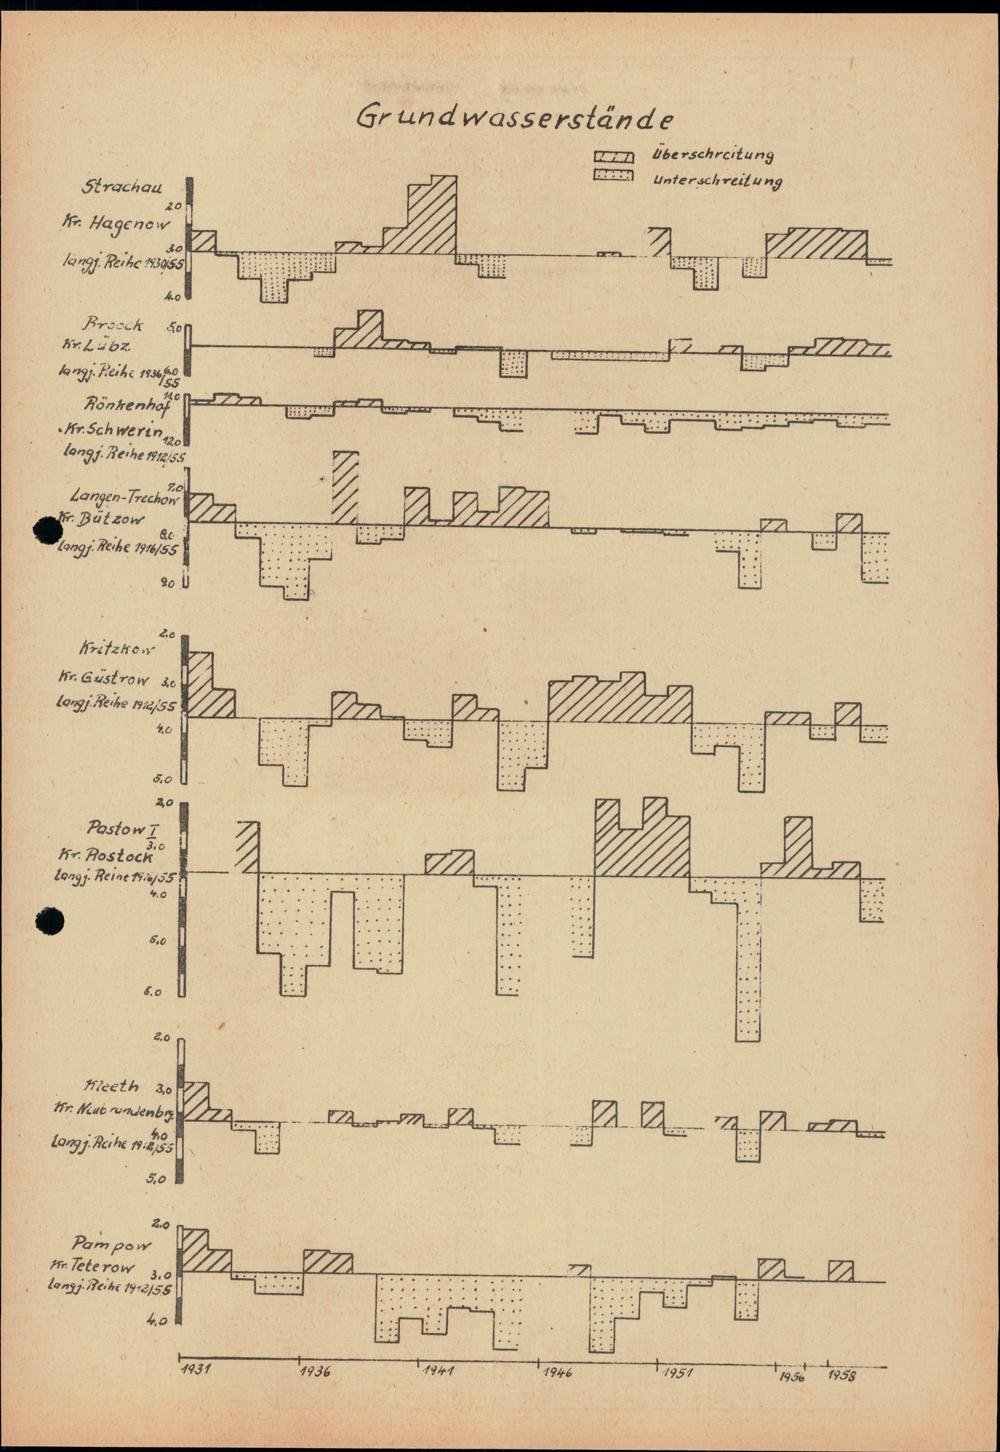 Grundwasserstände
Überschreitung
Unterschreitung
Strachau
2.0
Kr. Hagenow
3.0
langj. Reihe 1930/55
4.0
Broock
5.0
Kr. Lübz
langj. Reihe 1936/55
6.0
Rönkenhof
11.0
Kr. Schwerin
12.0
langj. Reihe 1912/55
7.0
Langen-Trechow
Kr. Bützow
8.0
langj. Reihe 1916/55
9.0
2.0
Kritzkow
Kr. Güstrow 3.0
langj. Reihe 1912/55
4.0
5.0
2.0
Pastow I
3.0
Kr. Rostock
langj. Reihe 1916/55
4.0
5.0
6.0
2.0
Kleeth 3.0
Kr. Neubrandenbg.
4.0
langj. Reihe 1912/55
5.0
2.0
Pampow
Kr. Teterow
3.0
langj. Reihe 1912/55
4.0
1931 1936 1941 1946 1951 1956 1958